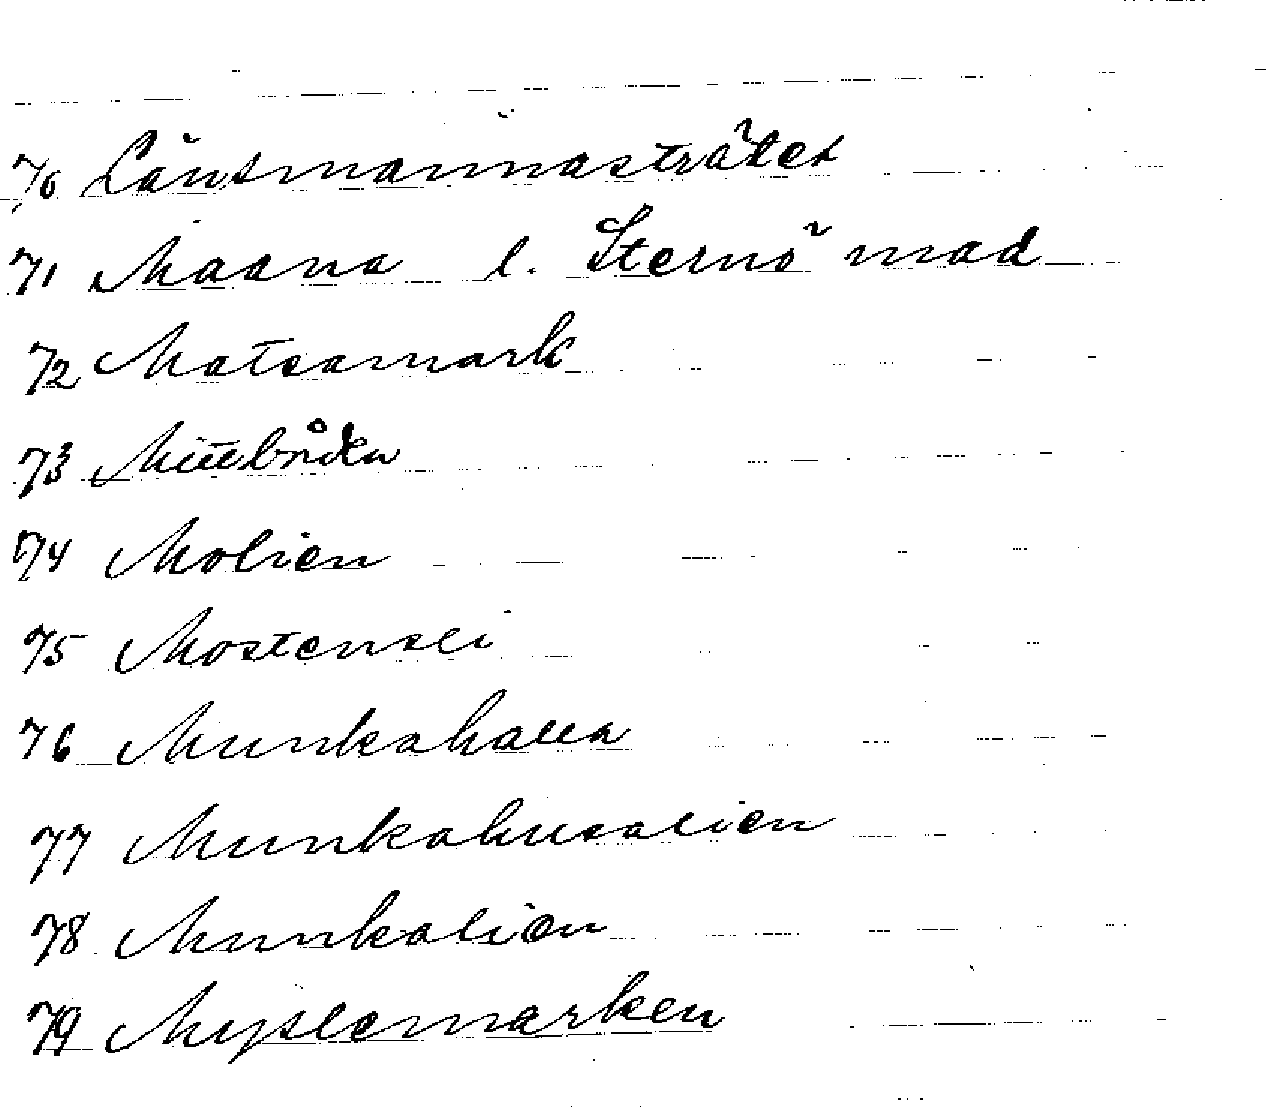 70 Länsmannasträtet
71 Maana l. Sternö mad
72 Matsamark
73 Mittbråten
74 Molien
75 Mostensli
76 Munkahalla
77 Munkahusalien
78 Munkalien
79 Myslemarken